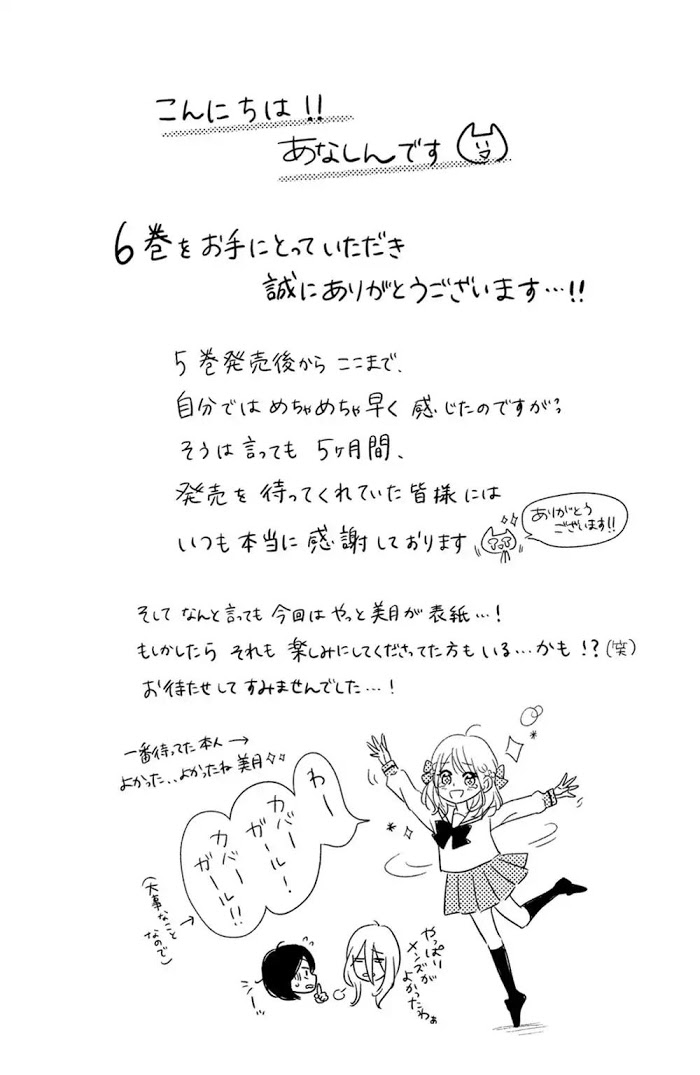 こんにちは!!
あなしんです
6巻をお手にとっていただき
誠にありがとうございます…!!
5巻発売後からここまで、
自分ではめちゃめちゃ早く感じたのですが、
そうは言っても5ヶ月間、
発売を待ってくれていた皆様には
いつも本当に感謝しております
ありがとう
ございます!!
そしてなんと言っても今回はやっと美月が表紙…!
もしかしたらそれも楽しみにしてくださってた方もいる…かも!?(笑)
お待たせしてすみませんでした…!
一番待ってた本人→
よかった…よかったね美月
わー
カバー
ガール!
カバー
ガール!!
(大事なこと
なので)→
やっぱり
メンズが
よかったわぁ
シーッ